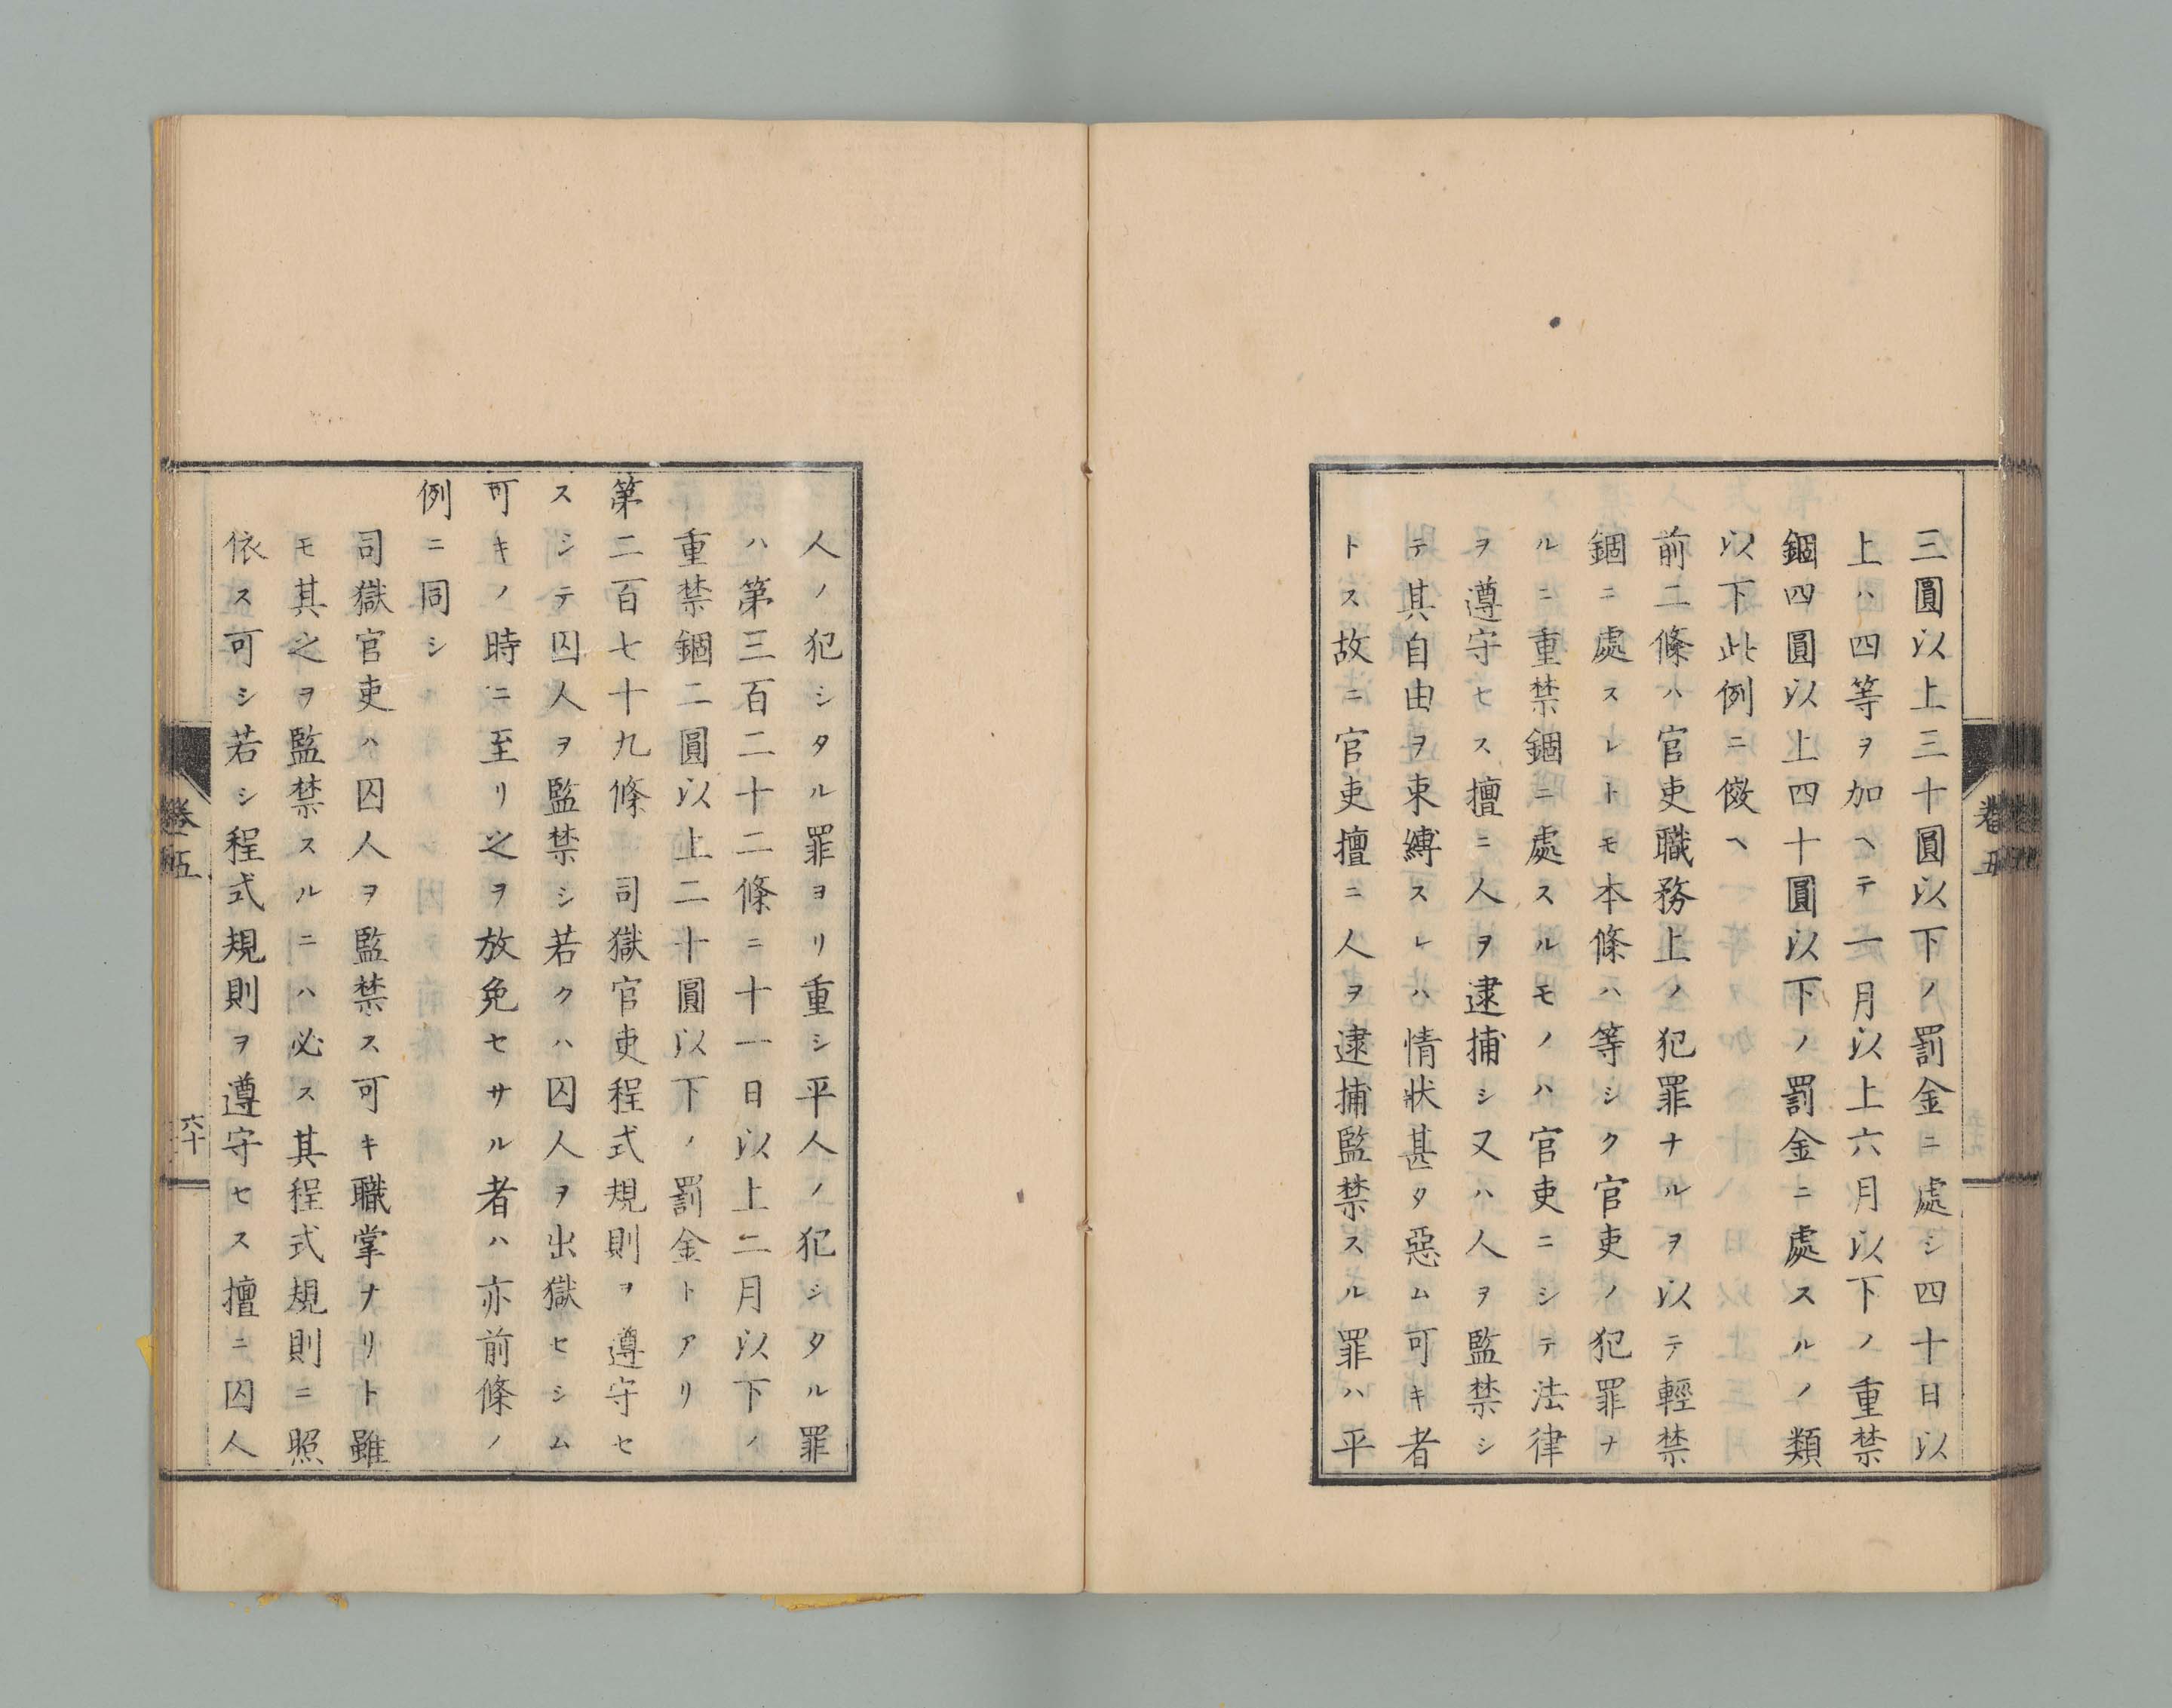 三圓以上三十圓以下ノ罰金ニ處シ四十日以
上ハ四等ヲ加ヘテ一月以上六月以下ノ重禁
錮四圓以上四十圓以下ノ罰金ニ處スルノ類
以下此例ニ傚ヘ
前二條ハ官吏職務上ノ犯罪ナルヲ以テ輕禁
錮ニ處スレトモ本條ハ等シク官吏ノ犯罪ナ
ルニ重禁錮ニ處スルモノハ官吏ニシテ法律
ヲ遵守セス擅ニ人ヲ逮捕シ又ハ人ヲ監禁シ
テ其自由ヲ束縛スレハ情狀甚タ惡ム可キ者
トス故ニ官吏擅ニ人ヲ逮捕監禁スル罪ハ平
卷五
人ノ犯シタル罪ヨリ重シ平人ノ犯シタル罪
ハ第三百二十二條ニ十一日以上二月以下ノ
重禁錮二圓以上二十圓以下ノ罰金トアリ
第二百七十九條 司獄官吏程式規則ヲ遵守セ
スシテ囚人ヲ監禁シ若クハ囚人ヲ出獄セシム
可キノ時ニ至リ之ヲ放免セサル者ハ亦前條ノ
例ニ同シ
司獄官吏ハ囚人ヲ監禁ス可キ職掌ナリト雖
モ其之ヲ監禁スルニハ必ス其程式規則ニ照
依ス可シ若シ程式規則ヲ遵守セス擅ニ囚人
卷五
六十